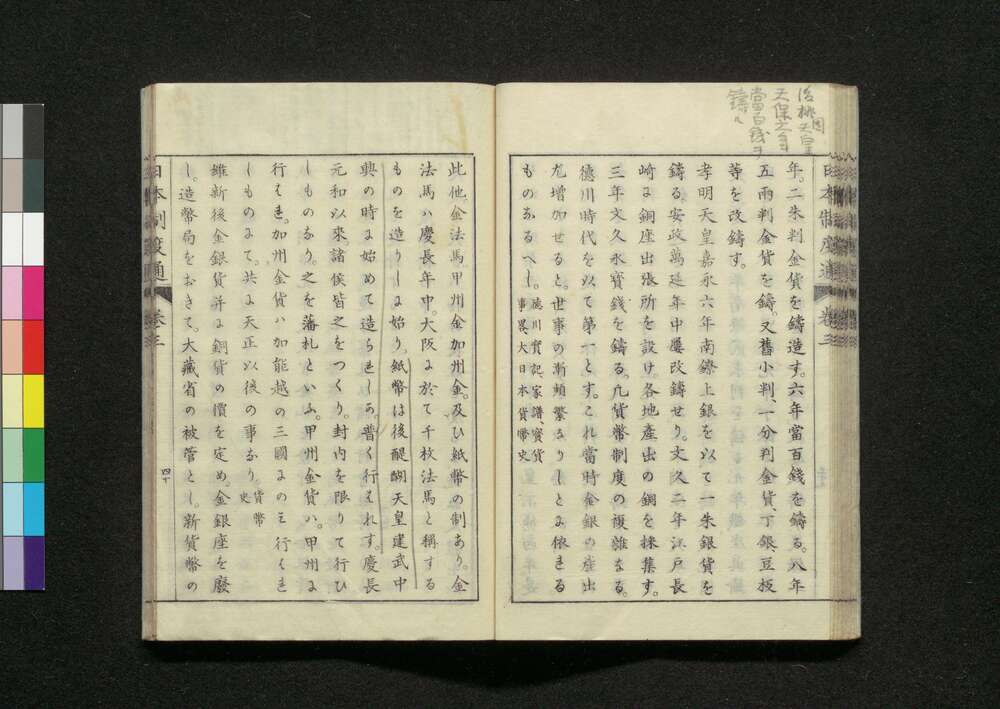 天保六年
當百錢ヲ
鑄ル
日本制度通
卷三
年。二朱判金貨を鑄造す。六年當百錢を鑄る。八年
五兩判金貨を鑄。又舊小判、一分判金貨、丁銀、豆板
等を改鑄す。
孝明天皇嘉永六年南鐐上銀を以て一朱銀貨を
鑄る。安政萬延年中屢改鑄せり。文久二年江戸長
崎に銅座出張所を設け各地產出の銅を採集す。
三年文久永寳錢を鑄る。凡貨幣制度の複雜なる。
德川時代を以て第一とす。これ當時金銀の產出
尤增加せると。世事の漸頻繁なりしとに依れる
ものなるべし。德川實記、家譜、寳貨
事畧、大日本貨幣史
此他。金法馬。甲州金加州金。及ひ紙幣の制あり。金
法馬ハ慶長年中。大阪に於て千枚法馬と稱する
ものを造りしに始り紙幣は後醍醐天皇建武中
興の時に始めて造られしか。普く行はれす。慶長
元和以來諸侯皆之をつくり。封内を限りて行ひ
しものなり。之を藩札といふ。甲州金貨ハ。甲州に
行はれ。加州金貨ハ加能越の三國にのミ行はれ
しものにて。共に天正以後の事なり。貨幣
史
維新後金銀貨并に銅貨の價を定め。金銀座を廢
し。造幣局をおきて。大藏省の被管とし。新貨幣の
日本制度通
卷三
四十